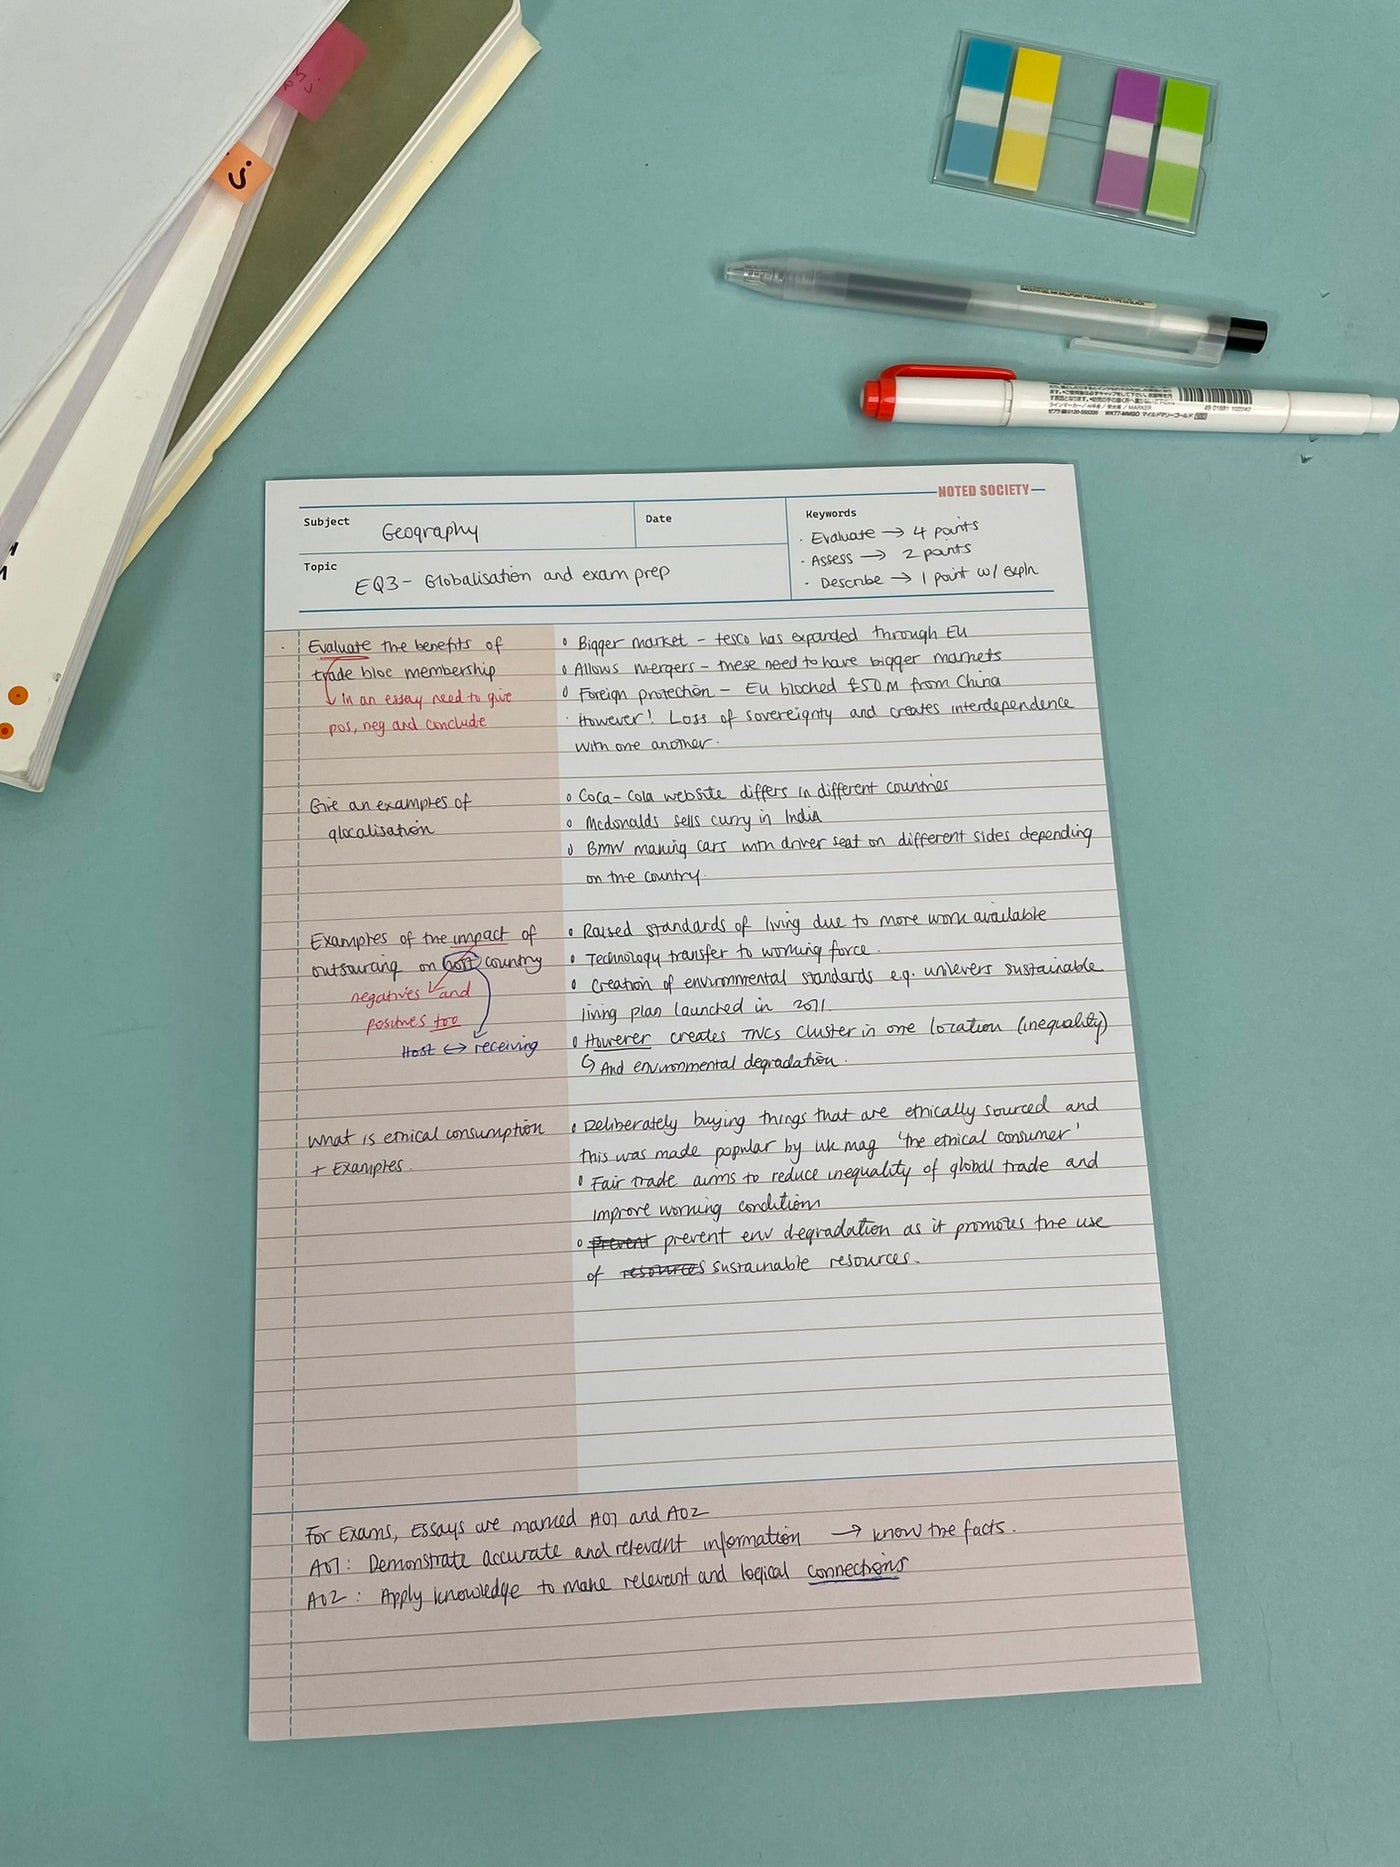 NOTED SOCIETY
Subject Geography
Date
Keywords
· Evaluate → 4 points
· Assess → 2 points
· Describe → 1 point w/ expln
Topic EQ3 - Globalisation and exam prep
Evaluate the benefits of
trade bloc membership
in an essay need to give
pos, neg and conclude
Bigger market - tesco has expanded through EU
Allows mergers - these need to have bigger markets
Foreign protection - EU blocked £50M from China
· However! Loss of sovereignty and creates interdependence
with one another.
Give an examples of
glocalisation
Coca-Cola website differs in different countries
Mcdonalds sells curry in India
BMW making cars with driver seat on different sides depending
on the country.
Examples of the impact of
outsourcing on host country
negatives and
positives too
Host ↔ receiving
Raised standards of living due to more work available
Technology transfer to working force.
Creation of environmental standards e.g. unilevers sustainable
living plan launched in 2011.
However creates TNCs cluster in one location (inequality)
↳ And environmental degradation.
What is ethical consumption
+ Examples.
Deliberately buying things that are ethically sourced and
this was made popular by uk mag 'the ethical consumer'
Fair trade aims to reduce inequality of global trade and
improve working conditions
prevent prevent env degradation as it promotes the use
of resources sustainable resources.
For Exams, Essays are marked A01 and A02
A01: Demonstrate accurate and relevant information → know the facts.
A02: Apply knowledge to make relevant and logical connections